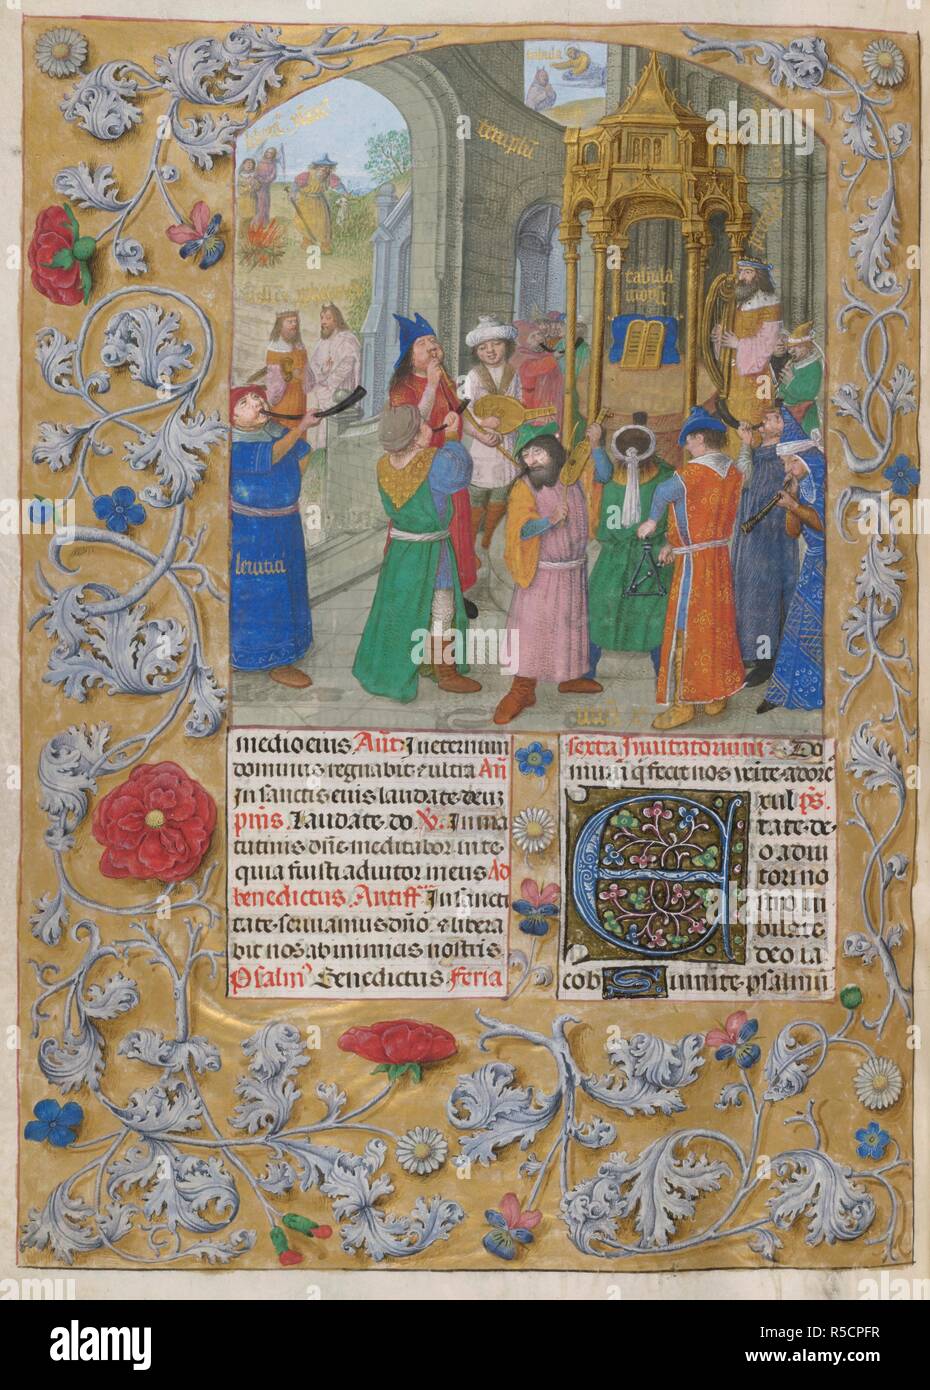 tabula
templum
tabula
moysi
levitici
mediocius Añ: In eternum
dominus regnabit & ultra Añ
In sanctis eius laudate deuz
pm̄s. Laudate do V. In ma
tutinis dn̄e meditabor in te
quia fuisti adiutor meus Ad
benedictus Antiff In sancti
tate seruiamus dn̄o & libera
bit nos ab inimicis nostris
Psalm9 Benedictus Feria
sexta Inuitatorium Do
minū q̄ fecit nos venite adorē
xul ps.
E tate de
o adiu
tori no
stro iu
bilate
deo ia
cob Sumite psalmū
alamy
a
alamy
a
a
a
alamy
Image ID: R5CPFR
www.alamy.com